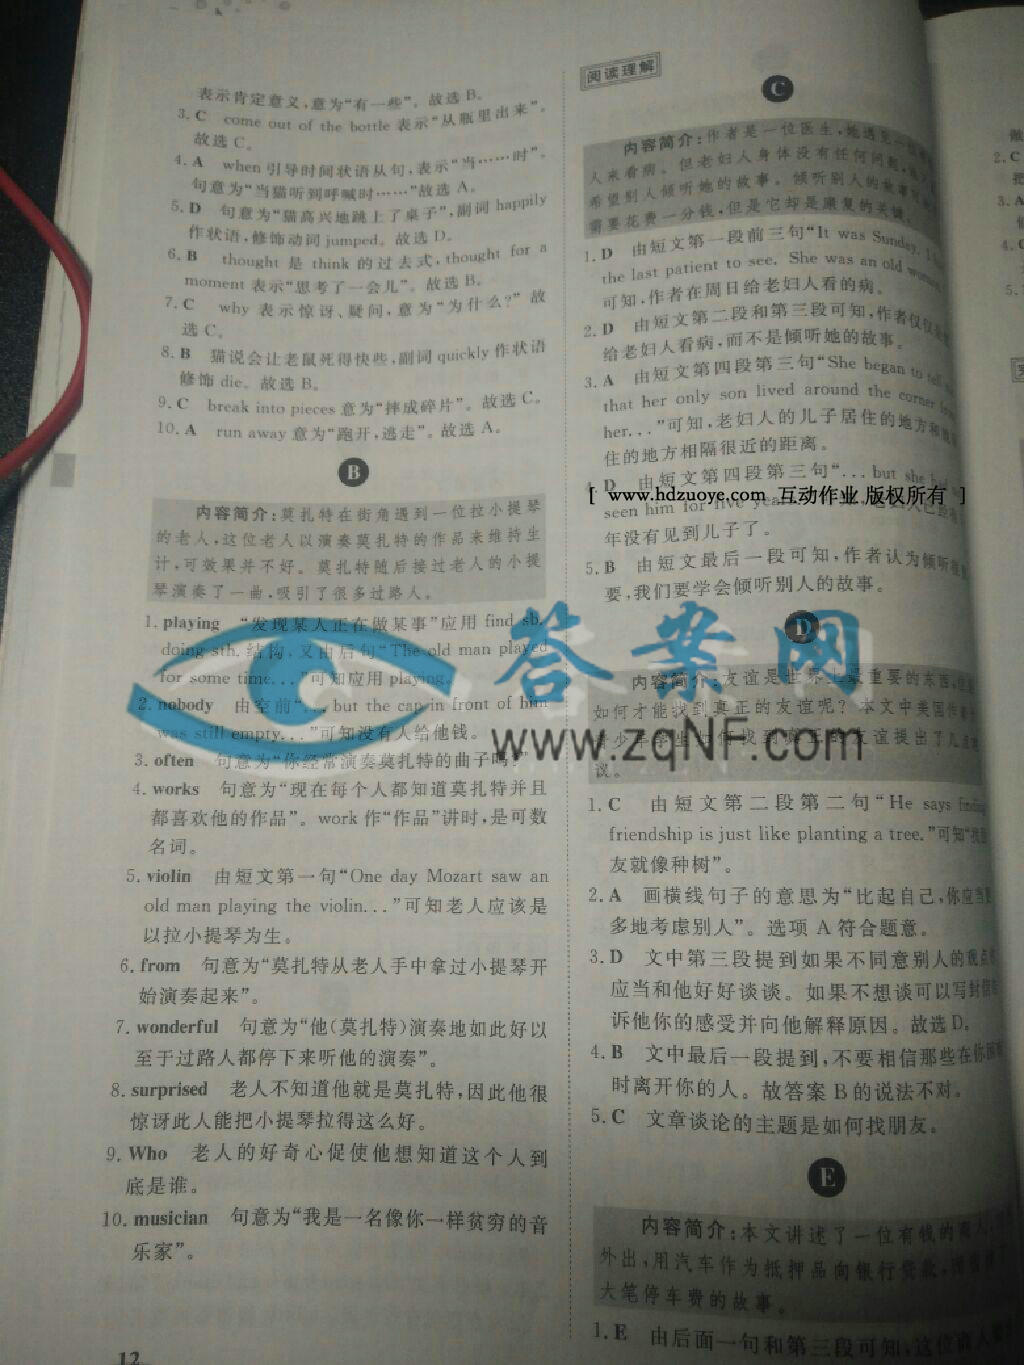 表示肯定意义，意为“有一些”。故选 B。
3. C come out of the bottle 表示“从瓶里出来”。
故选 C。
4. A when 引导时间状语从句，表示“当……时”。
句意为“当猫听到呼喊时……”故选 A。
5. D 句意为“猫高兴地跳上了桌子”，副词 happily
作状语，修饰动词 jumped。故选 D。
6. B thought 是 think 的过去式，thought for a
moment 表示“思考了一会儿”。故选 B。
7. C why 表示惊讶、疑问，意为“为什么？”故
选 C。
8. B 猫说会让老鼠死得快些，副词 quickly 作状语
修饰 die。故选 B。
9. C break into pieces 意为“摔成碎片”。故选 C。
10. A run away 意为“跑开，逃走”。故选 A。
B
内容简介：莫扎特在街角遇到一位拉小提琴
的老人，这位老人以演奏莫扎特的作品来维持生
计，可效果并不好。莫扎特随后接过老人的小提
琴演奏了一曲，吸引了很多过路人。
1. playing “发现某人正在做某事”应用 find sb.
doing sth. 结构，又由后句“The old man played
for some time...”可知应用 playing。
2. nobody 由空前“... but the cap in front of him
was still empty...”可知没有人给他钱。
3. often 句意为“你经常演奏莫扎特的曲子吗？”
4. works 句意为“现在每个人都知道莫扎特并且
都喜欢他的作品”。work 作“作品”讲时，是可数
名词。
5. violin 由短文第一句“One day Mozart saw an
old man playing the violin...”可知老人应该是
以拉小提琴为生。
6. from 句意为“莫扎特从老人手中拿过小提琴开
始演奏起来”。
7. wonderful 句意为“他（莫扎特）演奏地如此好以
至于过路人都停下来听他的演奏”。
8. surprised 老人不知道他就是莫扎特，因此他很
惊讶此人能把小提琴拉得这么好。
9. Who 老人的好奇心促使他想知道这个人到
底是谁。
10. musician 句意为“我是一名像你一样贫穷的音
乐家”。
12
阅读理解
C
内容简介：作者是一位医生，她遇见一
人来看病。但老妇人身体没有任何问题，
希望别人倾听她的故事。倾听别人的故事
需要花费一分钱，但是它却是康复的关键。
1. D 由短文第一段前三句“It was Sunday. I
the last patient to see. She was an old woman
可知，作者在周日给老妇人看的病。
2. D 由短文第二段和第三段可知，作者仅仅
给老妇人看病，而不是倾听她的故事。
3. A 由短文第四段第三句“She began to tell
that her only son lived around the corner from
her...”可知，老妇人的儿子居住的地方和
住的地方相隔很近的距离。
4. D 由短文第四段第三句“... but she had
seen him for five years
年没有见到儿子了。
[ www.hdzuoye.com 互动作业 版权所有 ]
5. B 由短文最后一段可知，作者认为倾听很
要，我们要学会倾听别人的故事。
D
内容简介：友谊是世界上最重要的东西，
如何才能找到真正的友谊呢？本文中美国作
提出了几
议。
1. C 由短文第二段第二句“He says finding
friendship is just like planting a tree.”可知“找
友就像种树”。
2. A 画横线句子的意思为“比起自己，你应当
多地考虑别人”。选项 A 符合题意。
3. D 文中第三段提到如果不同意别人的观点
应当和他好好谈谈。如果不想谈可以写封信
诉他你的感受并向他解释原因。故选 D。
4. B 文中最后一段提到，不要相信那些在你困
时离开你的人。故答案 B 的说法不对。
5. C 文章谈论的主题是如何找朋友。
E
内容简介：本文讲述了一位有钱的商人
外出，用汽车作为抵押品向银行贷款，
大笔停车费的故事。
1. E 由后面一句和第三段可知，这位商人
答案网
www.zqNF.com
2. C
3. A
4. C
5.